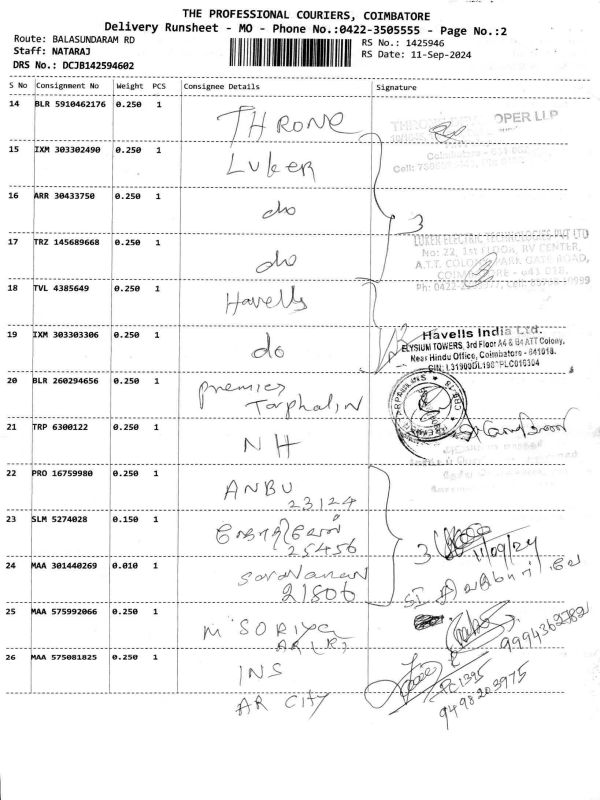 THE PROFESSIONAL COURIERS, COIMBATORE
Delivery Runsheet - MO - Phone No.:0422-3505555 - Page No.:2
Route: BALASUNDARAM RD
Staff: NATARAJ
DRS No.: DCJB142594602
RS No.: 1425946
RS Date: 11-Sep-2024
S No Consignment No Weight PCS Consignee Details Signature
14 BLR 5910462176 0.250 1 THRONE
OPER LLP
15 IXM 303302490 0.250 1 LUKER
16 ARR 30433750 0.250 1 do
3
17 TRZ 145689668 0.250 1 do
LUKER ELECTRIC TECHNOLOGIES PVT LTD
No: 22, 1st FLOOR, RV CENTER,
A.T.T. COLONY, PARK GATE ROAD,
COIMBATORE - 641 018.
18 TVL 4385649 0.250 1 Havells
19 IXM 303303306 0.250 1 do
Havells India Ltd.
ELYSIUM TOWERS, 3rd Floor A4 & B4 ATT Colony,
Near Hindu Office, Coimbatore - 641018.
20 BLR 260294656 0.250 1 premier
Tarphalin
21 TRP 6300122 0.250 1 NH
22 PRO 16759980 0.250 1 ANBU
23124
23 SLM 5274028 0.150 1
25456
3
11/09/24
24 MAA 301440269 0.010 1 Saravanan
21806
25 MAA 575992066 0.250 1 M. SORIYA
AR
9994362782
26 MAA 575081825 0.250 1 INS
AR CITY
PC 1395
9498203975